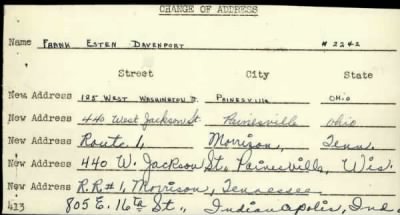 CHANGE OF ADDRESS
Name FRANK ESTEN DAVENPORT # 2242
Street City State
New Address 125 WEST WASHINGTON ST. PAINESVILLE OHIO
New Address 440 West Jackson St. Painesville Ohio
New Address Route 1, Morrison, Tenn.
New Address 440 W. Jackson St., Painesville, Wis.
New Address R.R#1, Morrison, Tennessee
413 805 E. 16th St., Indianapolis, Ind.